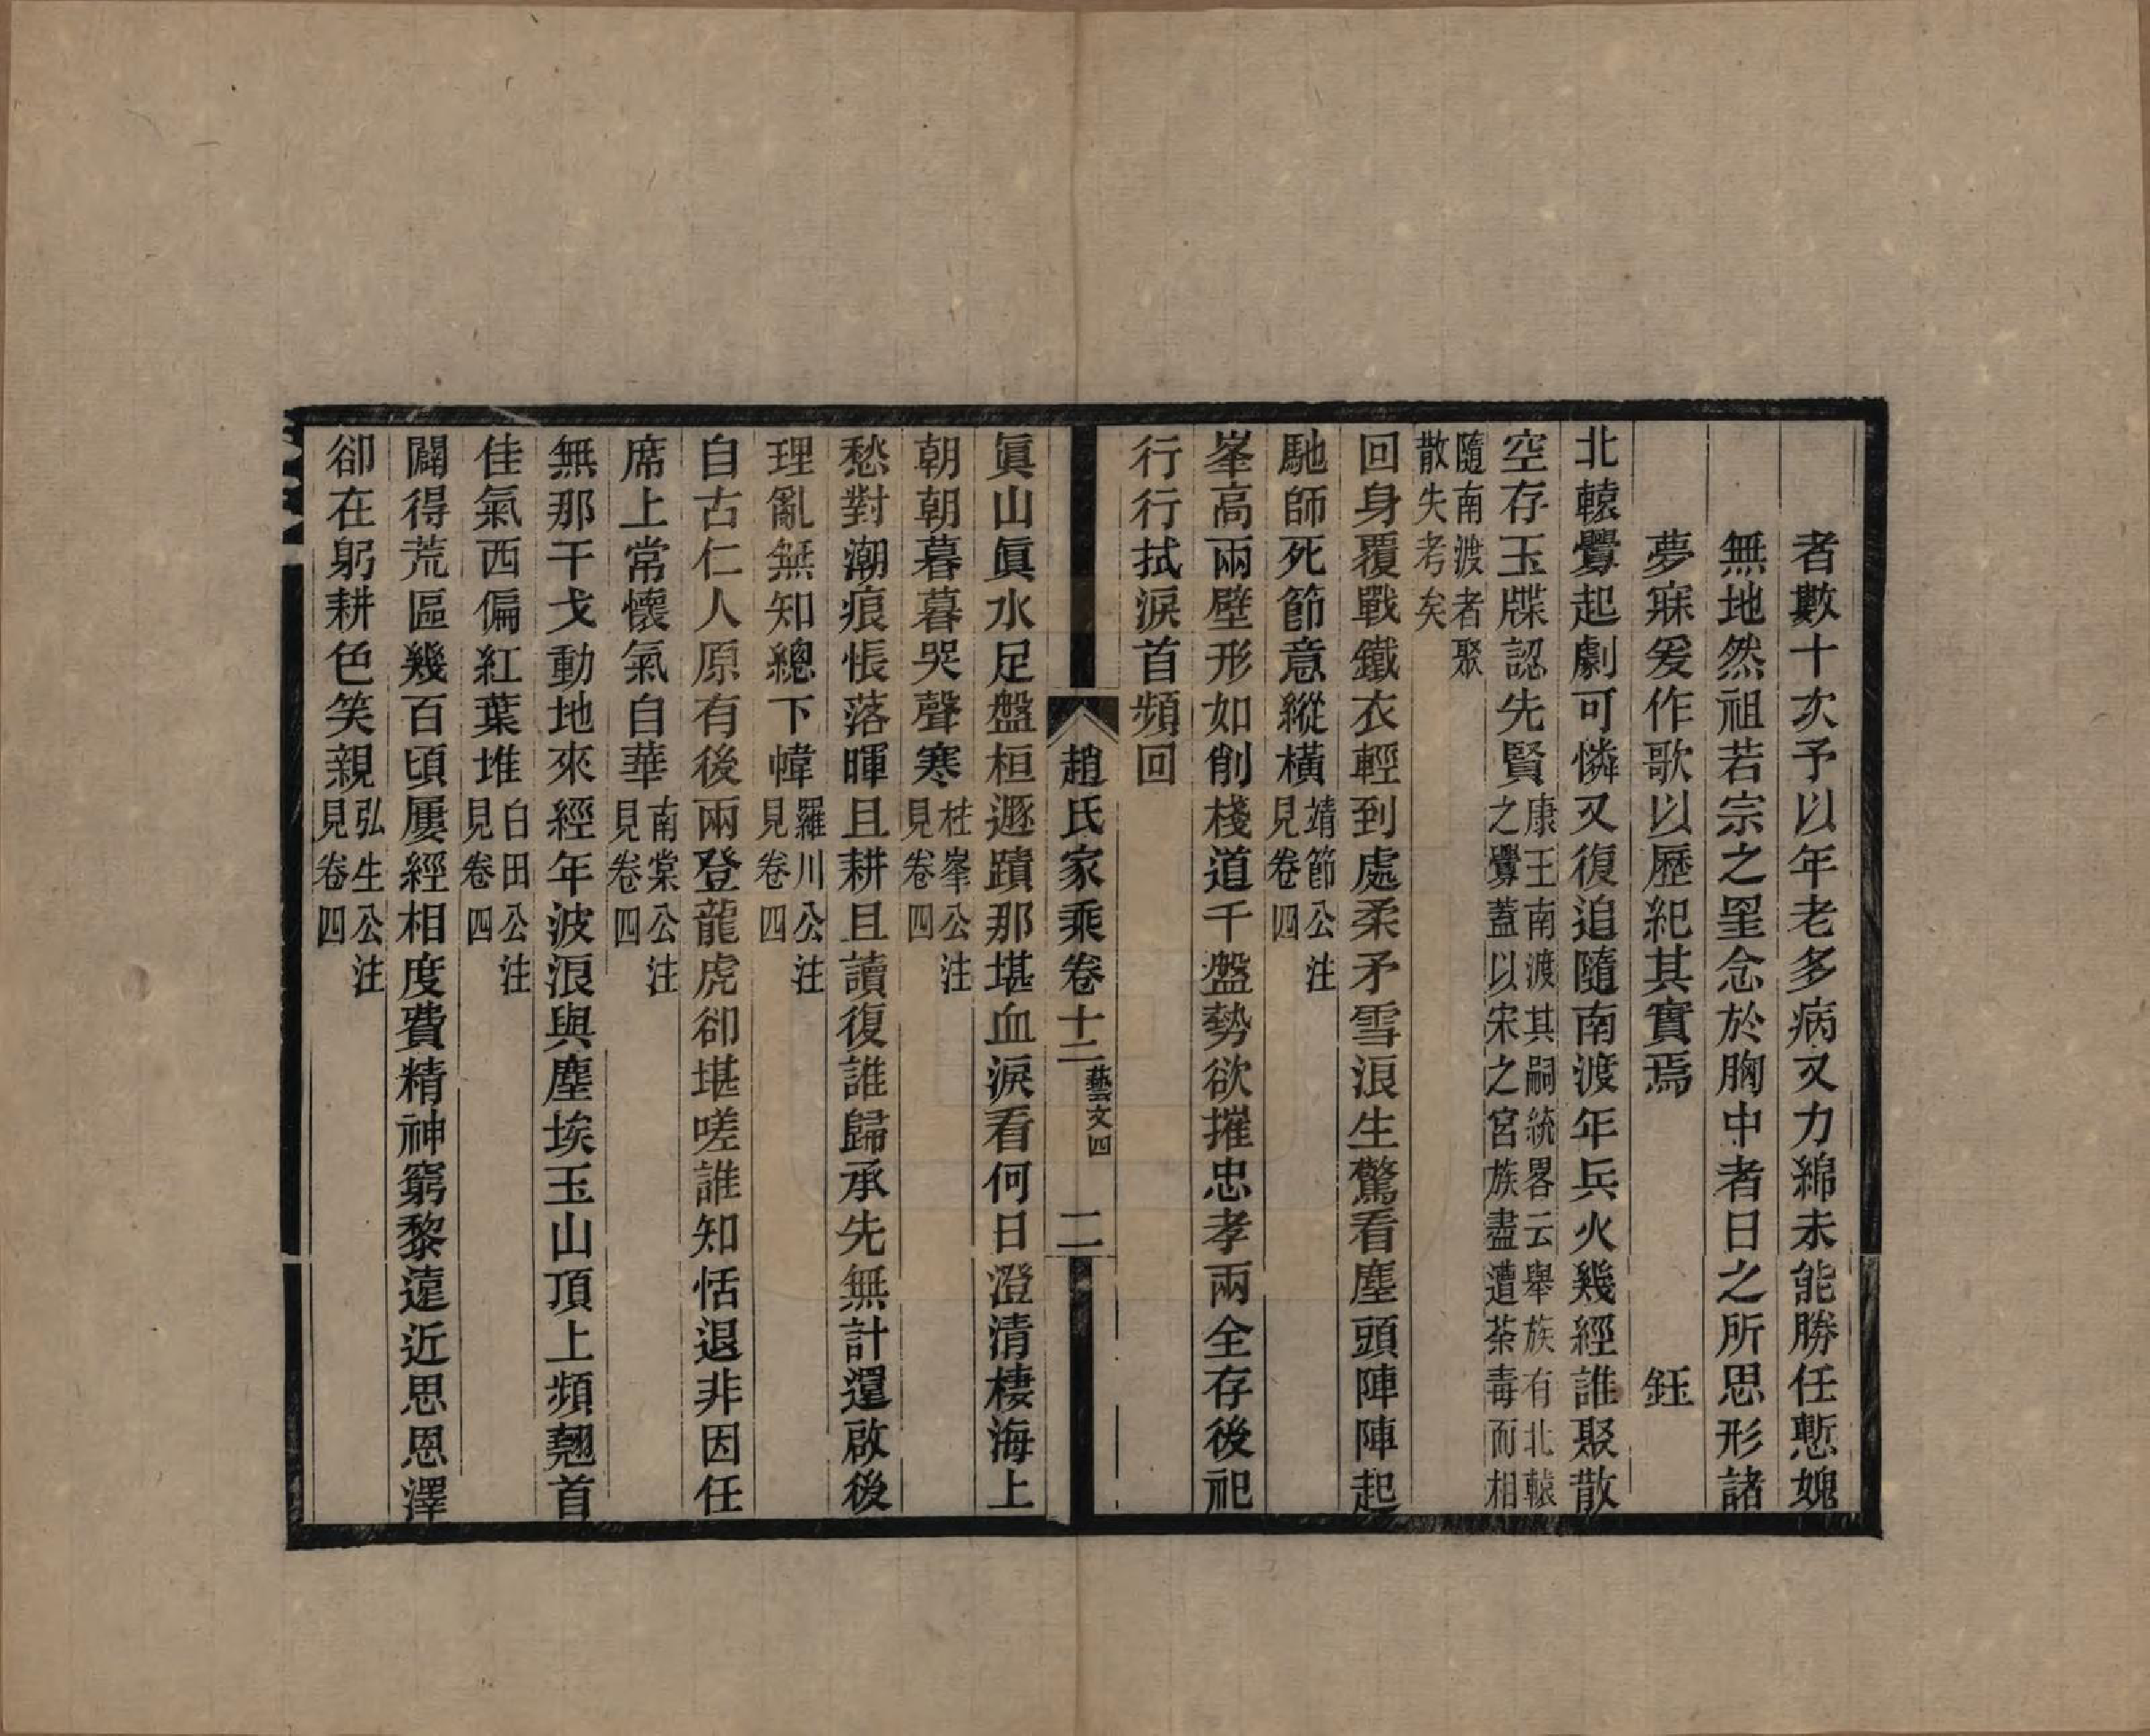 者數十次予以年老多病又力綿未能勝任慙媿
無地然祖若宗之罣念於胸中者日之所思形諸
夢寐爰作歌以歷紀其實焉 鈺
北轅釁起劇可憐又復追隨南渡年兵火幾經誰聚散
空存玉牒認先賢康王南渡其嗣統畧云舉族有北轅之釁蓋以宋之宮族盡遭荼毒而相
隨南渡者聚散失考矣
回身覆戰鐵衣輕到處柔矛雪浪生驚看塵頭陣陣起
馳師死節意縱橫靖節公注見卷四
峯高兩壁形如削棧道千盤勢欲摧忠孝兩全存後祀
行行拭淚首頻回
趙氏家乘卷十二 藝文四 二
眞山眞水足盤桓遯蹟那堪血淚看何日澄清棲海上
朝朝暮暮哭聲寒桂峯公注見卷四
愁對潮痕悵落暉且耕且讀復誰歸承先無計還啟後
理亂無知總下幃羅川公注見卷四
自古仁人原有後兩登龍虎卻堪嗟誰知恬退非因任
席上常懷氣自華南棠公注見卷四
無那干戈動地來經年波浪與塵埃玉山頂上頻翹首
佳氣西偏紅葉堆白田公注見卷四
闢得荒區幾百頃屢經相度費精神窮黎遠近思恩澤
卻在躬耕色笑親弘生公注見卷四